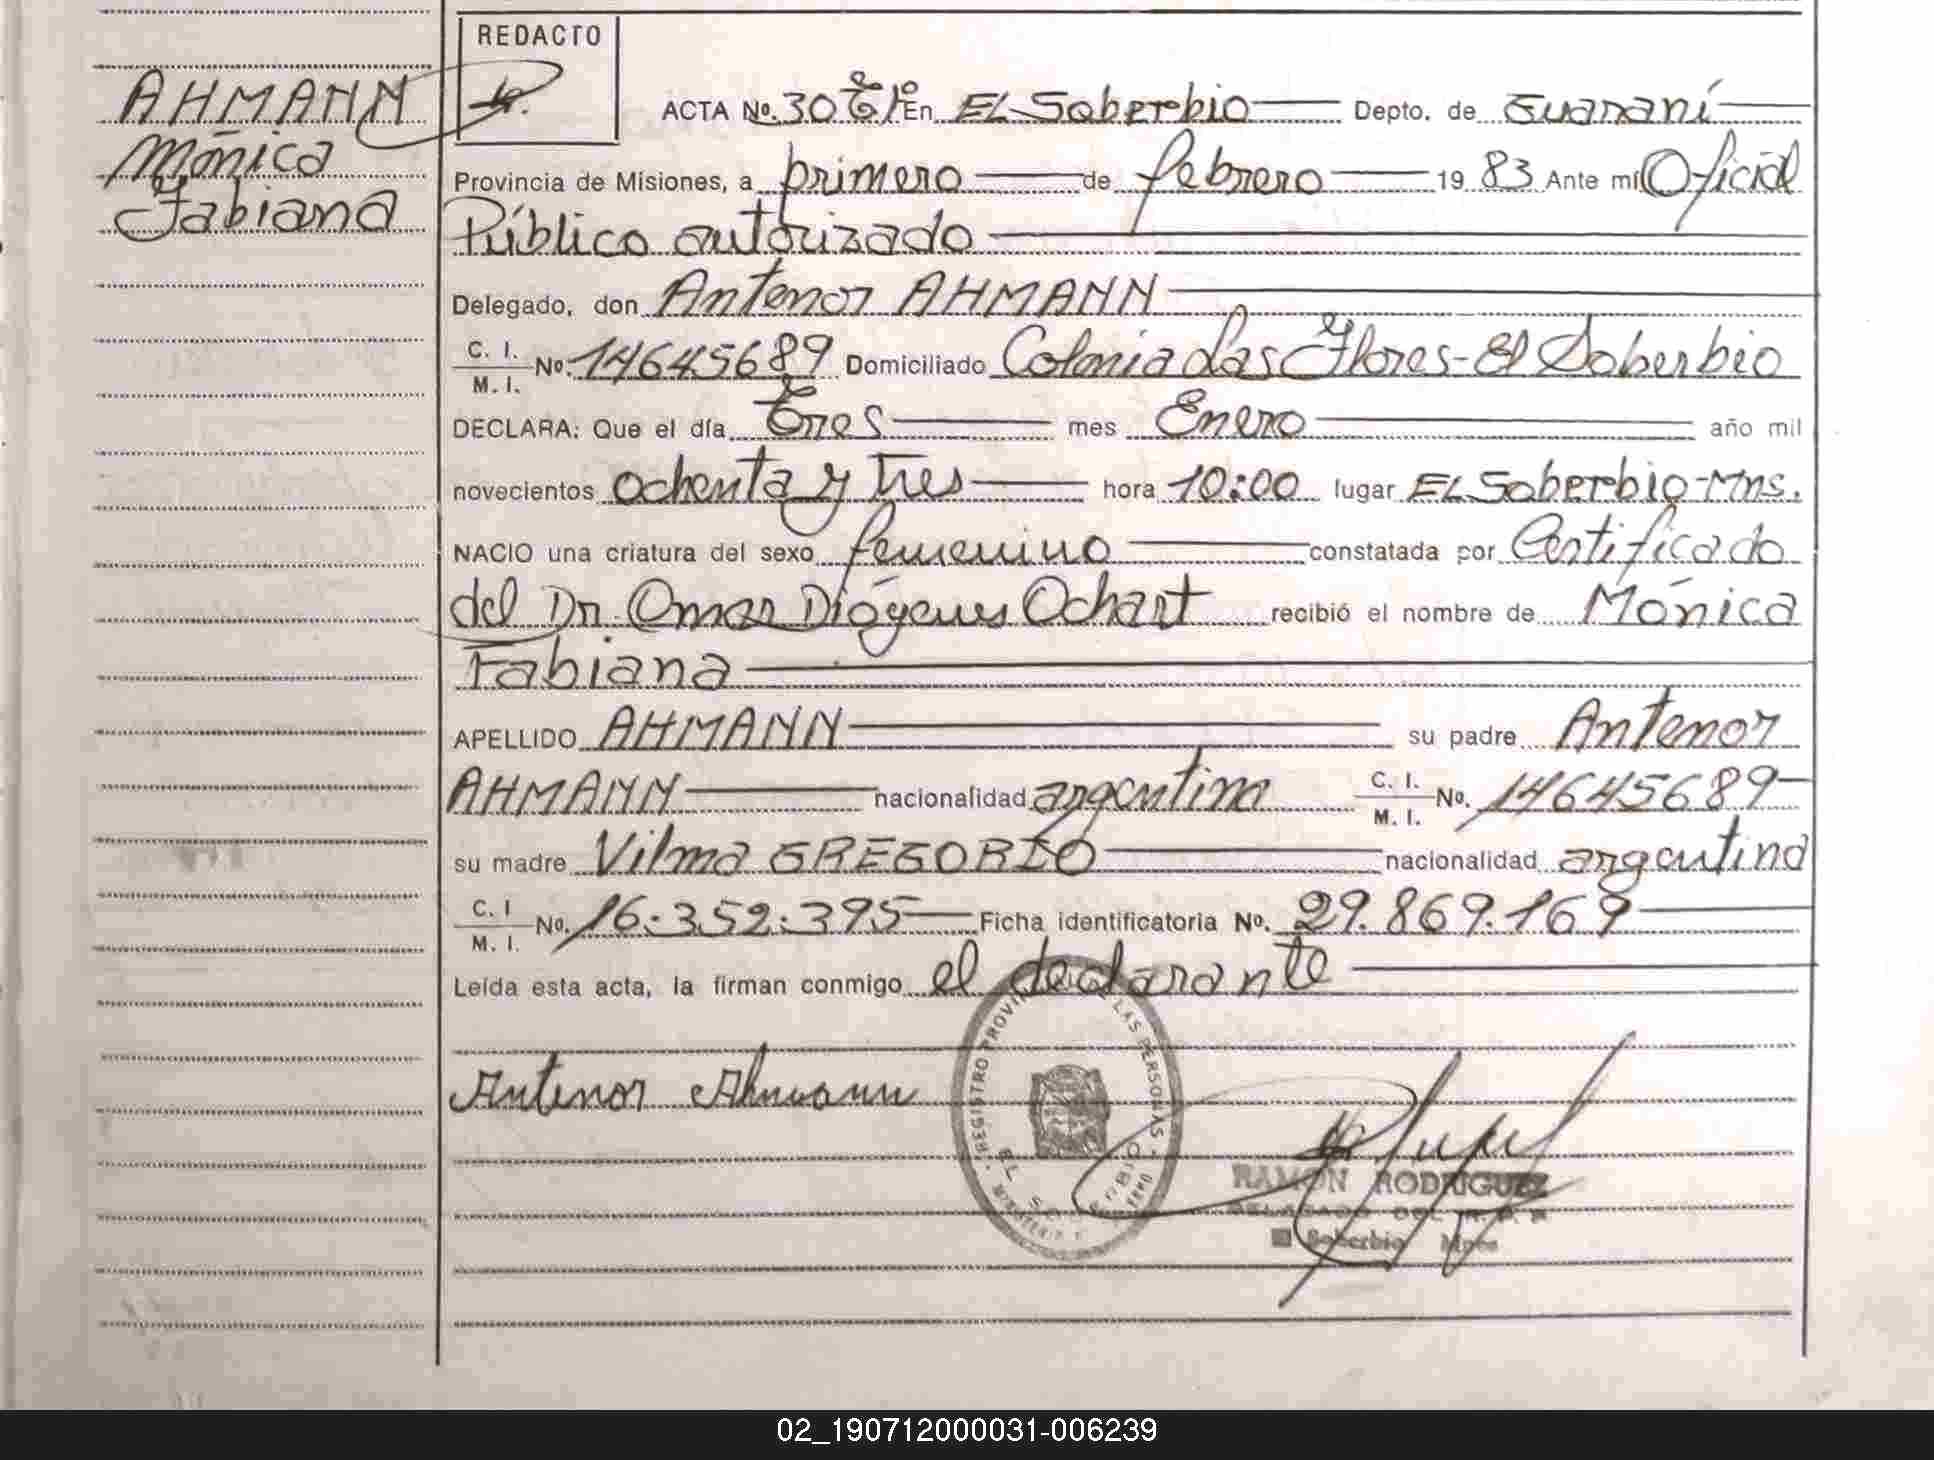 REDACTO
AHMANN
Mónica
Fabiana
ACTA No. 30 Tº1º En EL Soberbio Depto. de Guaraní
Provincia de Misiones, a primero de febrero 19 83 Ante mí Oficial
Público autorizado
Delegado, don Antenor AHMANN
C. I. M. I. No. 14645689 Domiciliado Colonia Las Flores - El Soberbio
DECLARA: Que el día Tres mes Enero año mil
novecientos ochenta y Tres hora 10:00 lugar EL Soberbio-Mns.
NACIO una criatura del sexo femenino constatada por Certificado
del Dr. Omar Diógenes Ochart recibió el nombre de Mónica
Fabiana
APELLIDO AHMANN su padre Antenor
AHMANN nacionalidad argentina C. I. M. I. No. 14645689
su madre Vilma GREGORIO nacionalidad argentina
C. I M. I. No. 16.352.395 Ficha identificatoria No. 29.869.169
Leída esta acta, la firman conmigo el declarante
Antenor Ahmann
REGISTRO PROVINCIAL DE LAS PERSONAS
EL SOBERBIO
RAMON RODRIGUEZ
DELEGADO DEL R. P. P.
El Soberbio Mnes
02_190712000031-006239